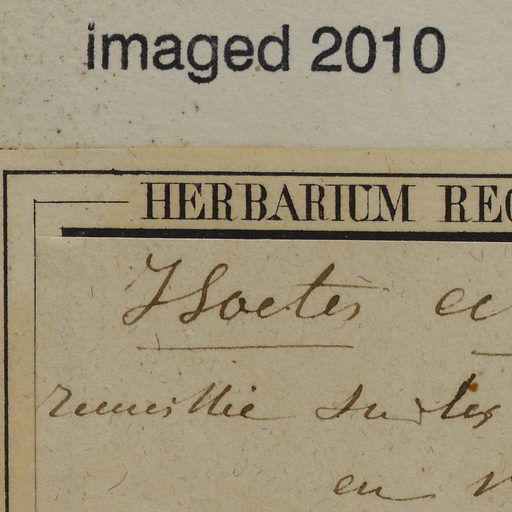 imaged 2010
HERBARIUM REG
Isoetes ec
recueillie sur les
en